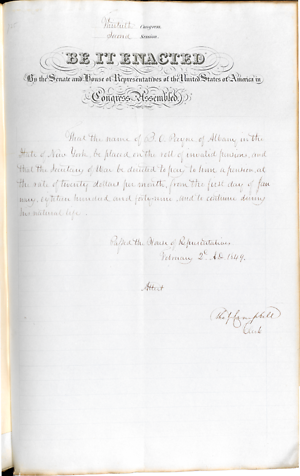 Thirtieth Congress
Second Session
BE IT ENACTED
By the Senate and House of Representatives of the United States of America in
Congress Assembled,
That the name of P. C. of Albany in the
State of New York, be placed on the roll of invalid pensions, and
that the Secretary of War be directed to pay to have a pension, at
the rate of twenty dollars per month, from the first day of Jan
uary, eighteen hundred and forty nine and to continue during
his natural life.
Passed the House of Representatives
February 2d AD 1849.
Attest
Campbell
Clerk